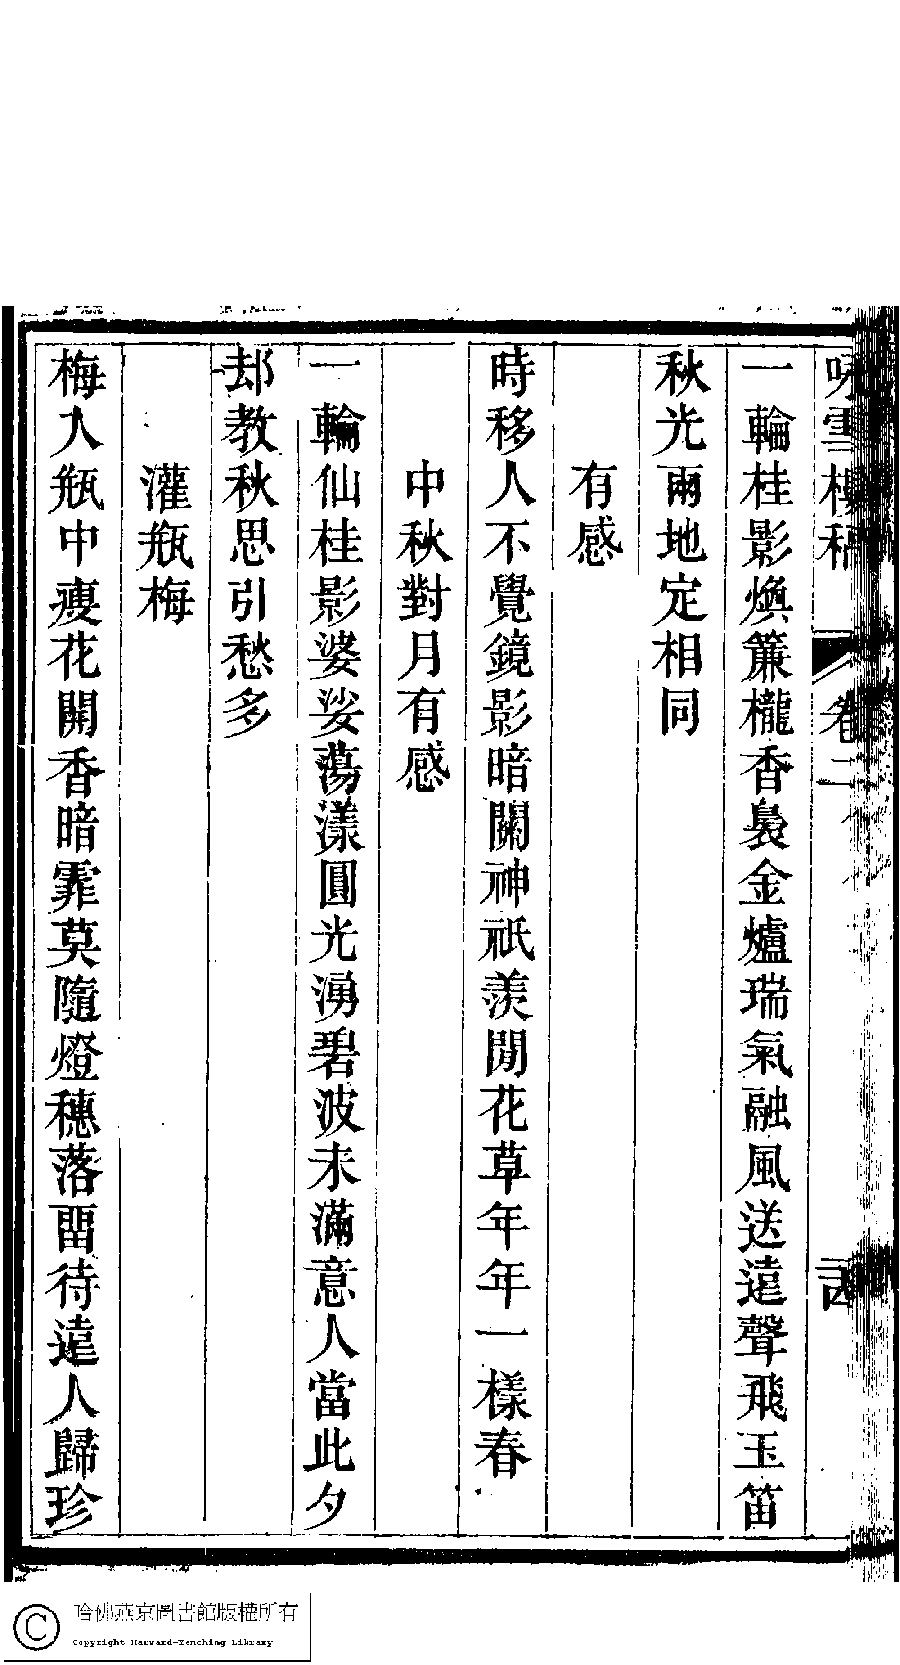 咏雪樓稿 卷二
一輪桂影煥簾櫳香裊金爐瑞氣融風送遠聲飛玉笛
秋光兩地定相同
有感
時移人不覺鏡影暗關神祇羨閒花草年年一樣春
中秋對月有感
一輪仙桂影婆娑蕩漾圓光湧碧波未滿意人當此夕
却教秋思引愁多
灌瓶梅
梅入瓶中瘦花開香暗霏莫隨燈穗落畱待遠人歸珍
哈佛燕京圖書館版權所有
Copyright Harvard-Yenching Library